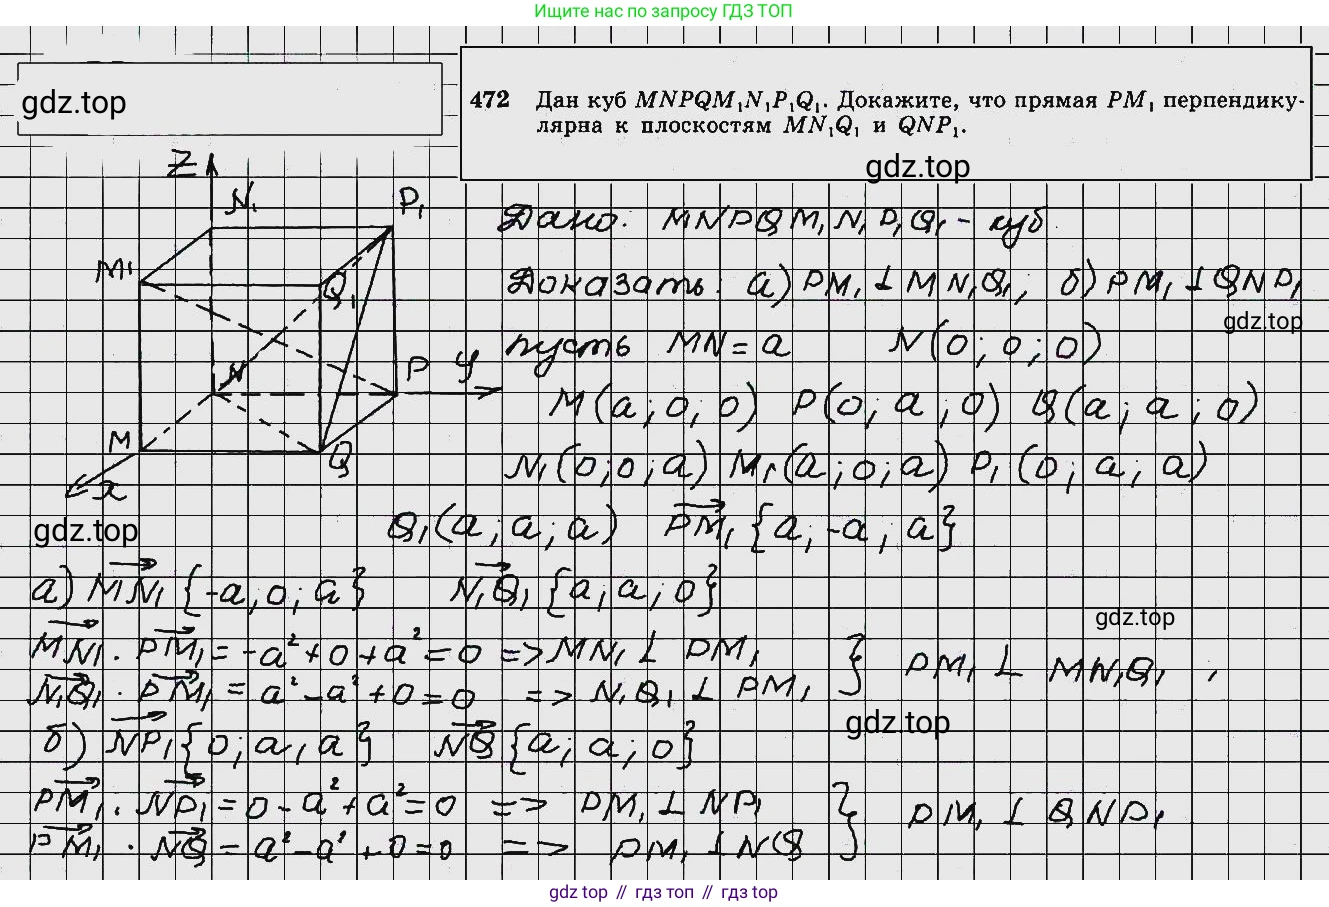 Ищите нас по запросу ГДЗ ТОП
gdz.top
472 Дан куб MNPQM₁N₁P₁Q₁. Докажите, что прямая PM₁ перпендику-
лярна к плоскостям MN₁Q₁ и QNP₁.
gdz.top
Z
N₁
P₁
M₁
Q₁
N
P
y
M
Q
x
gdz.top
Дано: MNPQM₁N₁P₁Q₁ - куб
Доказать: а) PM₁ ⊥ MN₁Q₁; б) PM₁ ⊥ QNP₁
gdz.top
пусть MN = a N(0; 0; 0)
M(a; 0; 0) P(0; a; 0) Q(a; a; 0)
N₁(0; 0; a) M₁(a; 0; a) P₁(0; a; a)
Q₁(a; a; a) PM₁ {a; -a; a}
а) MN₁ {-a; 0; a} N₁Q₁ {a; a; 0}
gdz.top
MN₁ · PM₁ = -a² + 0 + a² = 0 => MN₁ ⊥ PM₁
N₁Q₁ · PM₁ = a² - a² + 0 = 0 => N₁Q₁ ⊥ PM₁ } PM₁ ⊥ MN₁Q₁,
gdz.top
б) NP₁ {0; a; a} NQ {a; a; 0}
PM₁ · NP₁ = 0 - a² + a² = 0 => PM₁ ⊥ NP₁
PM₁ · NQ = a² - a² + 0 = 0 => PM₁ ⊥ NQ } PM₁ ⊥ QNP₁
gdz.top // гдз топ // гдз top